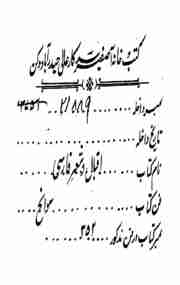 کتب خانہ آصفیہ سرکار عالی حیدرآباد دکن
نمبر داخلہ ........ ۲۱۵۸۹
تاریخ داخلہ ........
نام کتاب .... اقبال در شعر فارسی ....
فن کتاب ........ سوانح ....
نمبر کتاب در فن مذکور .... ۳۵۲ ....